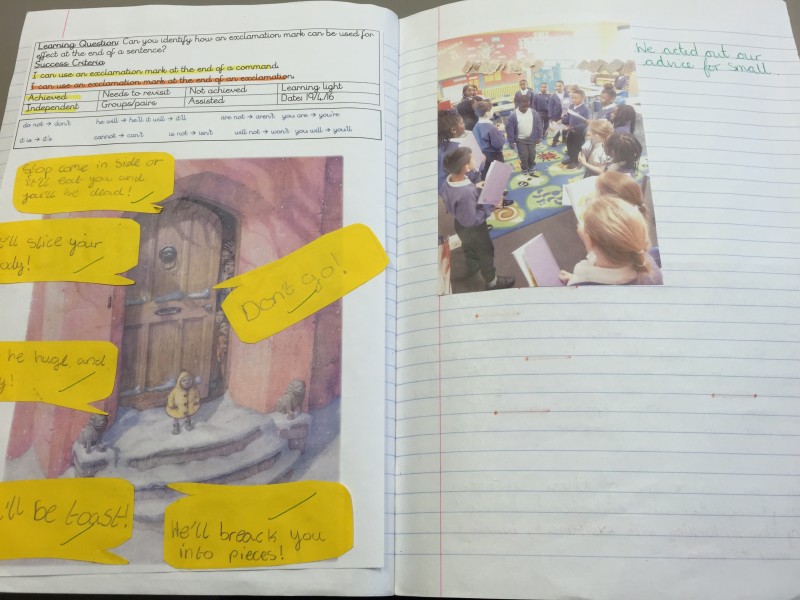 Learning Question: Can you identify how an exclamation mark can be used for
effect at the end of a sentence?
Success Criteria
I can use an exclamation mark at the end of a command.
I can use an exclamation mark at the end of an exclamation.
Achieved Needs to revisit Not achieved Learning light
Independent Groups/pairs Assisted Date: 19/4/16
do not → don't he will → he'll it will → it'll are not → aren't you are → you're
it is → it's cannot → can't is not → isn't will not → won't you will → you'll
Stop come in side or
it'll eat you and
you'll be dead!
'll slice your
ody!
Don't go!
he hugl and
y!
'll be toast!
He'll breack you
into pieces!
We acted out our
advice for small.